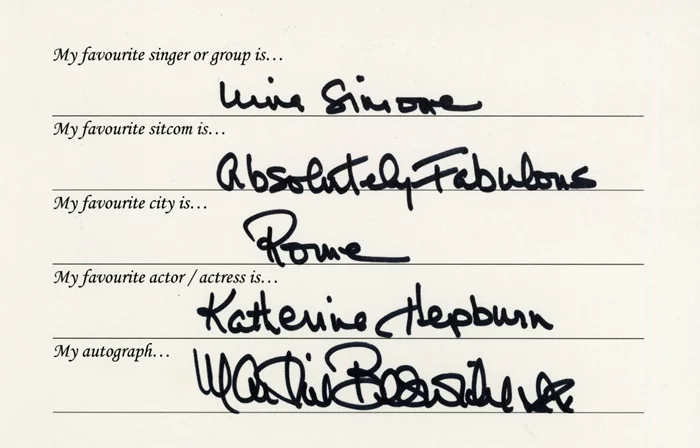 My favourite singer or group is...
Nina Simone
My favourite sitcom is...
Absolutely Fabulous
My favourite city is...
Rome
My favourite actor / actress is...
Katherine Hepburn
My autograph...
Martine Beswicke